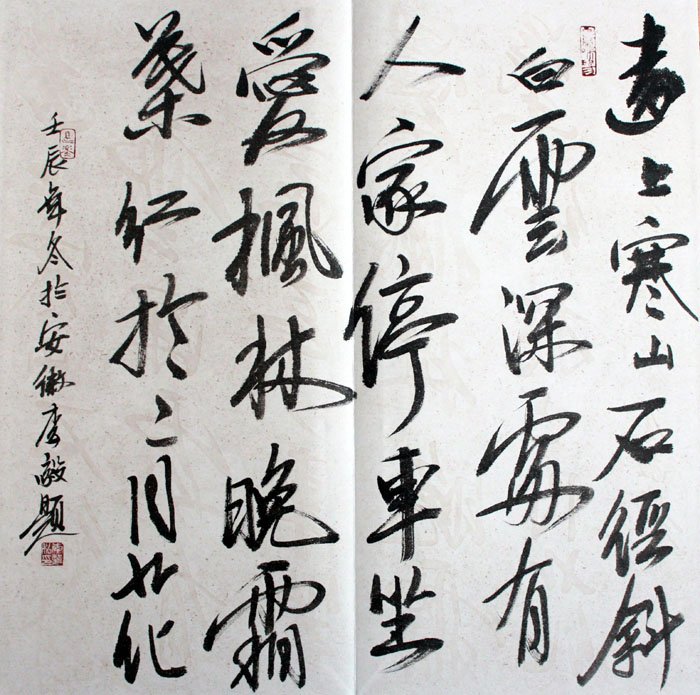 遠上寒山石徑斜
白雲深處有
人家停車坐
愛楓林晚霜
葉紅於二月花
壬辰年冬於安徽李毅題